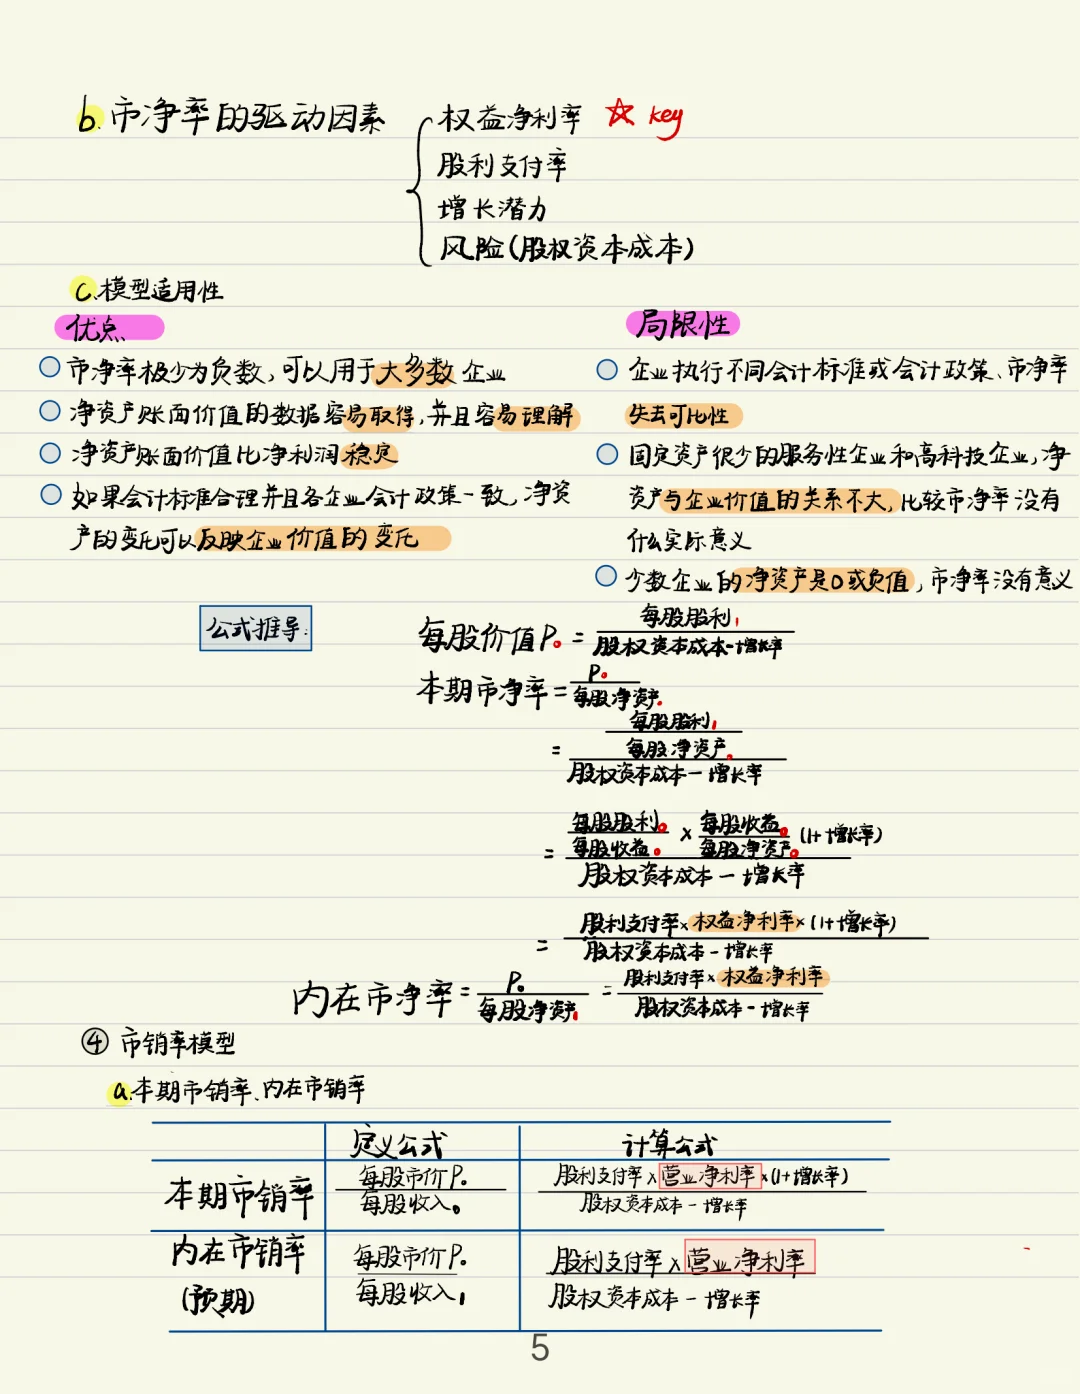 b.市净率的驱动因素
权益净利率 ☆ key
股利支付率
增长潜力
风险(股权资本成本)
c.模型适用性
优点
市净率极少为负数,可以用于大多数企业
净资产账面价值的数据容易取得,并且容易理解
净资产账面价值比净利润稳定
如果会计标准合理并且各企业会计政策一致,净资
产的变化可以反映企业价值的变化
局限性
企业执行不同会计标准或会计政策、市净率
失去可比性
固定资产很少的服务性企业和高科技企业,净
资产与企业价值的关系不大,比较市净率没有
什么实际意义
少数企业的净资产是0或负值,市净率没有意义
公式推导:
每股价值P₀ = 每股股利₁
股权资本成本-增长率
本期市净率 = P₀
每股净资产₀
每股股利₁
= 每股净资产₀
股权资本成本-增长率
每股股利₀ × 每股收益₀ (1+增长率)
= 每股收益₀ 每股净资产₀
股权资本成本-增长率
= 股利支付率×权益净利率×(1+增长率)
股权资本成本-增长率
内在市净率 = P₀ = 股利支付率×权益净利率
每股净资产₁ 股权资本成本-增长率
④ 市销率模型
a.本期市销率、内在市销率
定义公式 计算公式
本期市销率 每股市价P₀ 股利支付率×营业净利率×(1+增长率)
每股收入₀ 股权资本成本-增长率
内在市销率 每股市价P₀ 股利支付率×营业净利率
(预期) 每股收入₁ 股权资本成本-增长率
5